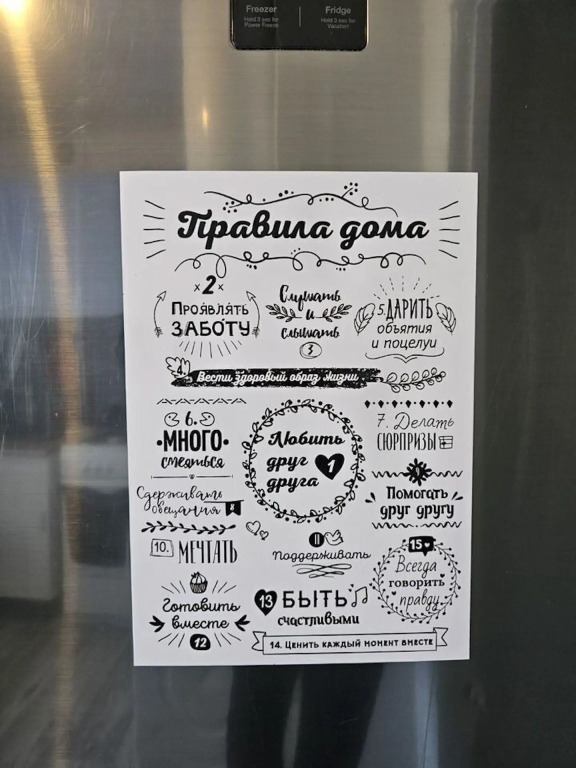 Freezer
Hold 3 sec for
Power Freeze
Fridge
Hold 3 sec for
Vacation
Правила дома
2
ПРОЯВЛЯТЬ
ЗАБОТУ
Слушать
и
слышать
3
5. ДАРИТЬ
объятия
и поцелуи
4. Вести здоровый образ жизни
6.
МНОГО
смеяться
Любить
друг
друга
1
7. Делать
СЮРПРИЗЫ
Сдерживать
обещания 8
Помогать
друг другу
10. МЕЧТАТЬ
11
Поддерживать
15
Всегда
говорить
правду
Готовить
вместе
12
13 БЫТЬ
счастливыми
14. ЦЕНИТЬ КАЖДЫЙ МОМЕНТ ВМЕСТЕ